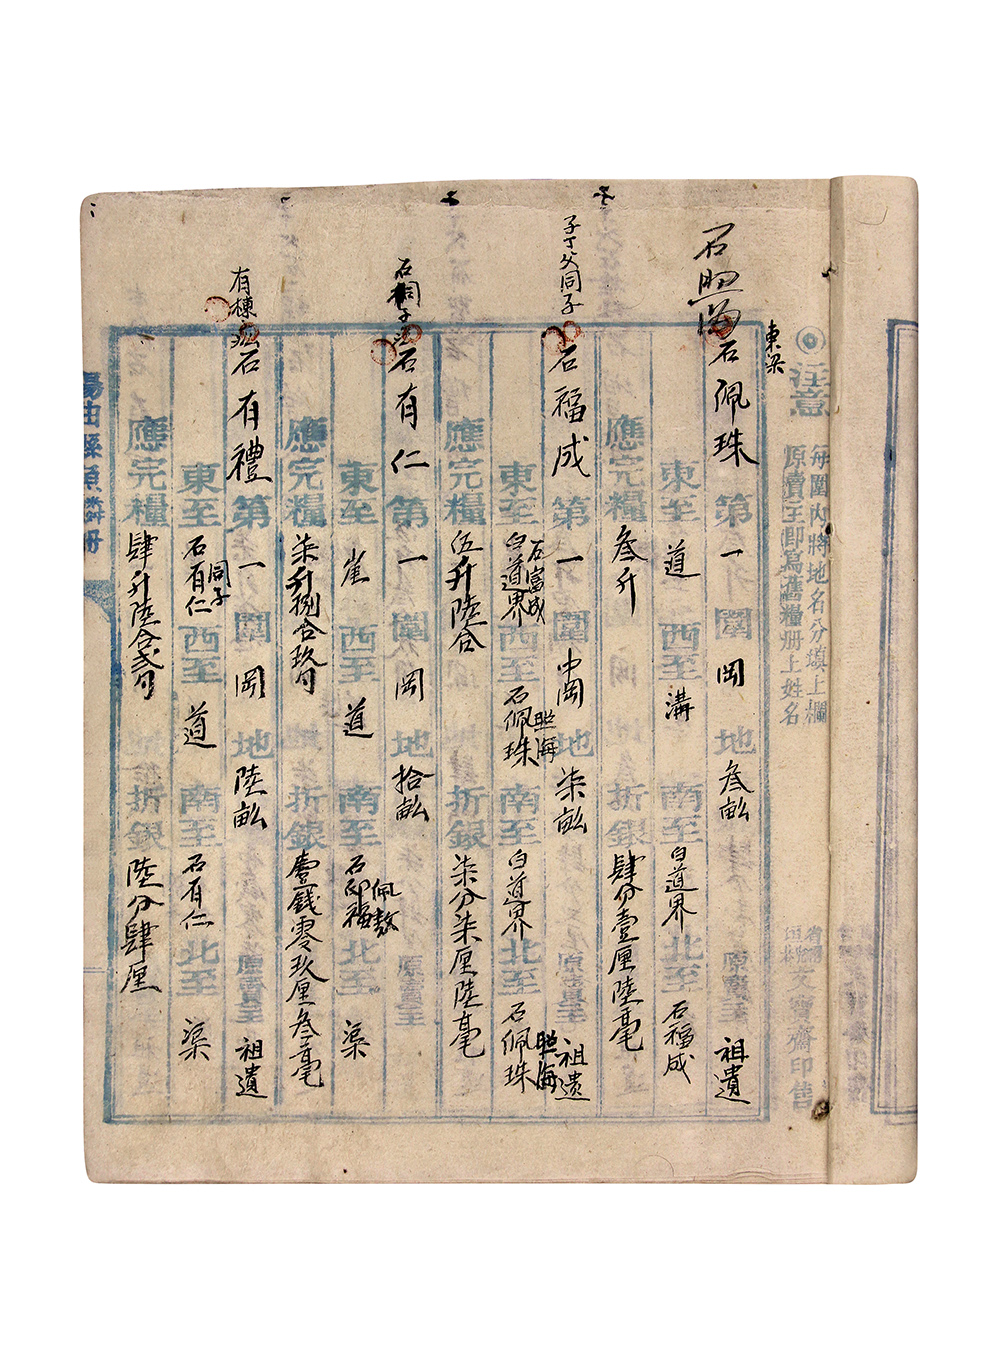 注意
每圖內將地名分填上欄
原賣主即寫舊糧册上姓名
文寶齋印售
東梁
石照海
石佩珠 第一圖 岡地 叁畝 原賣主 祖遺
東至 道 西至 溝 南至 白道界 北至 石福成
應完糧 叁升 地 折銀 肆分壹厘陸毫
子丁父同子
石福成 第一圖 中岡地 柒畝 原賣主 祖遺
東至 石富成 白道界 西至 石佩珠 照海 南至 白道界 北至 石佩珠 照海
應完糧 伍升陸合 地 折銀 柒分柒厘陸毫
石有仁 第一圖 岡地 拾畝 原賣主
東至 崔 西至 道 南至 石 福 佩 北至 渠
應完糧 柒升捌合玖勺 地 折銀 壹錢零玖厘叁毫
有棟
石有禮 第一圖 岡地 陸畝 原賣主 祖遺
東至 石有仁 同子 西至 道 南至 石有仁 北至 渠
應完糧 肆升陸合貳勺 地 折銀 陸分肆厘
陽曲縣魚鱗册